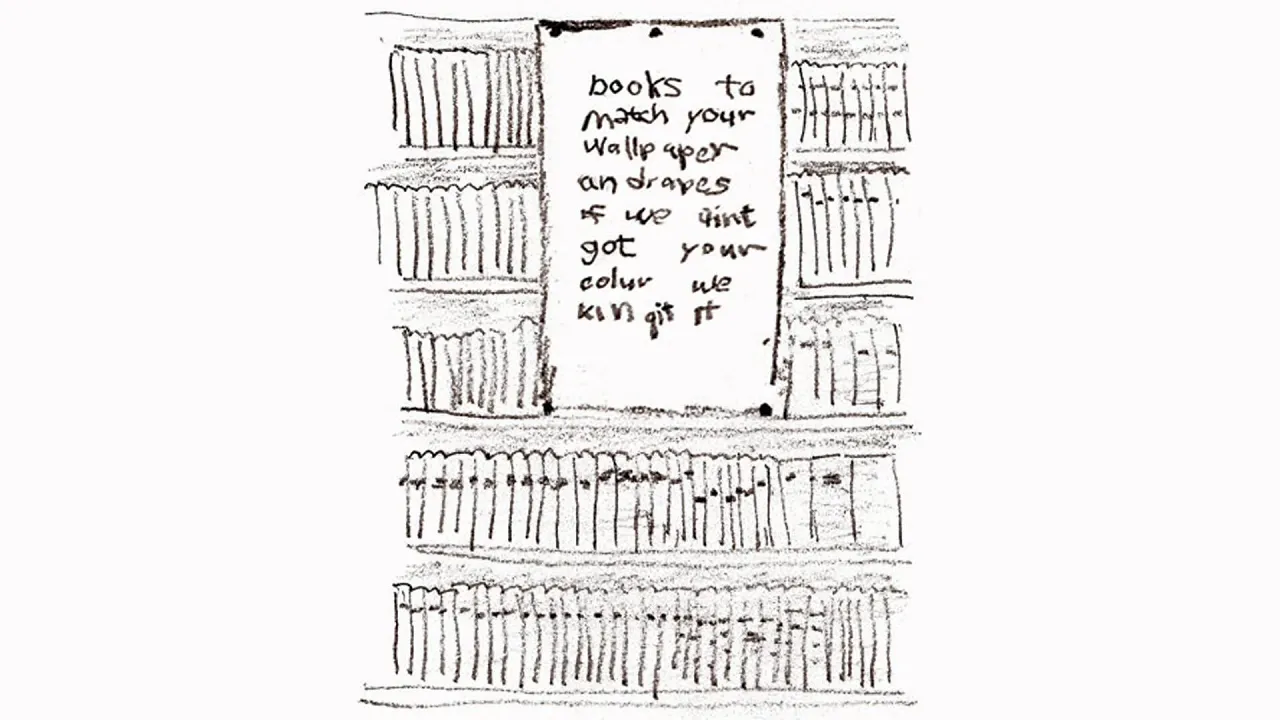 books to
match your
wallpaper
an drapes
if we aint
got your
colur we
kin git it